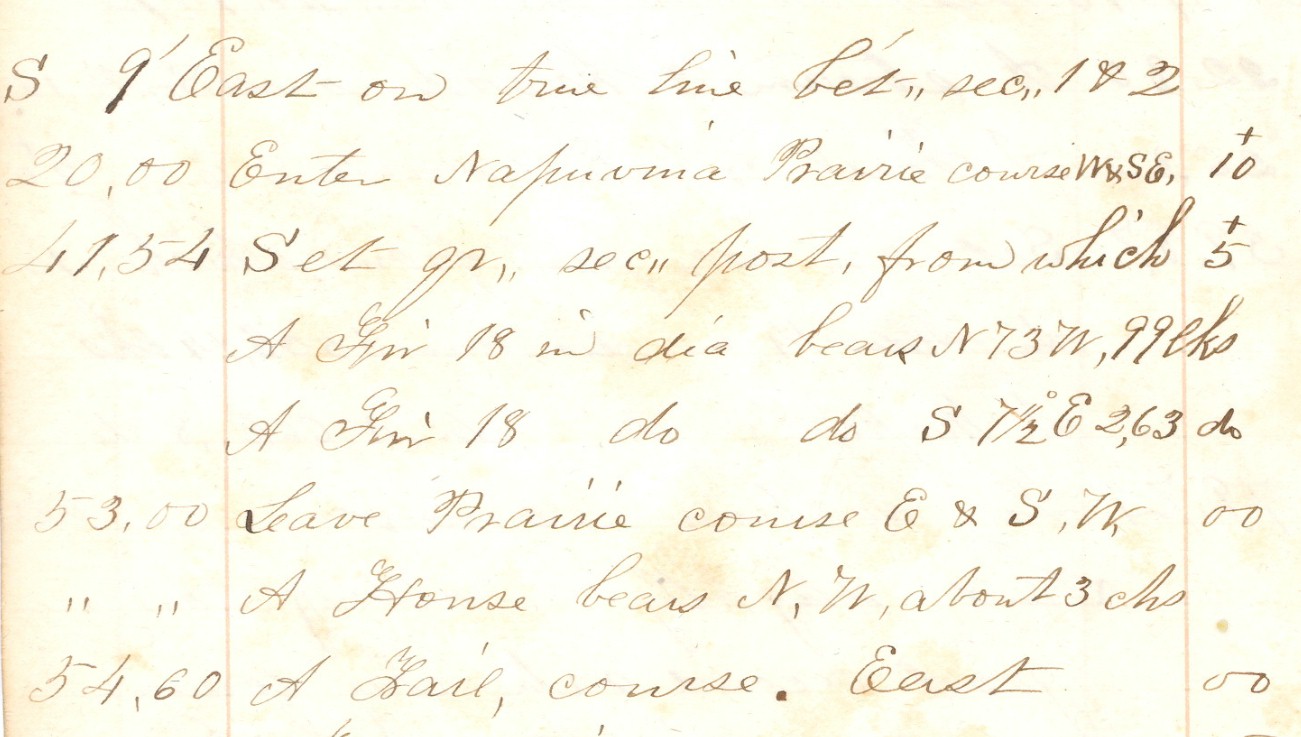 S 9' East on true line bet,, sec,, 1 & 2
20,00 Enter Prairie course W & SE, +10
41,54 Set qr,, sec,, post, from which +5
A Fir 18 in dia bears N 73 W, 99 lks
A Fir 18 do do S 7½° E 2,63 do
53,00 Leave Prairie course E & S,W, 00
,, ,, A House bears N,W, about 3 chs
54,60 A Trail, course. East 00